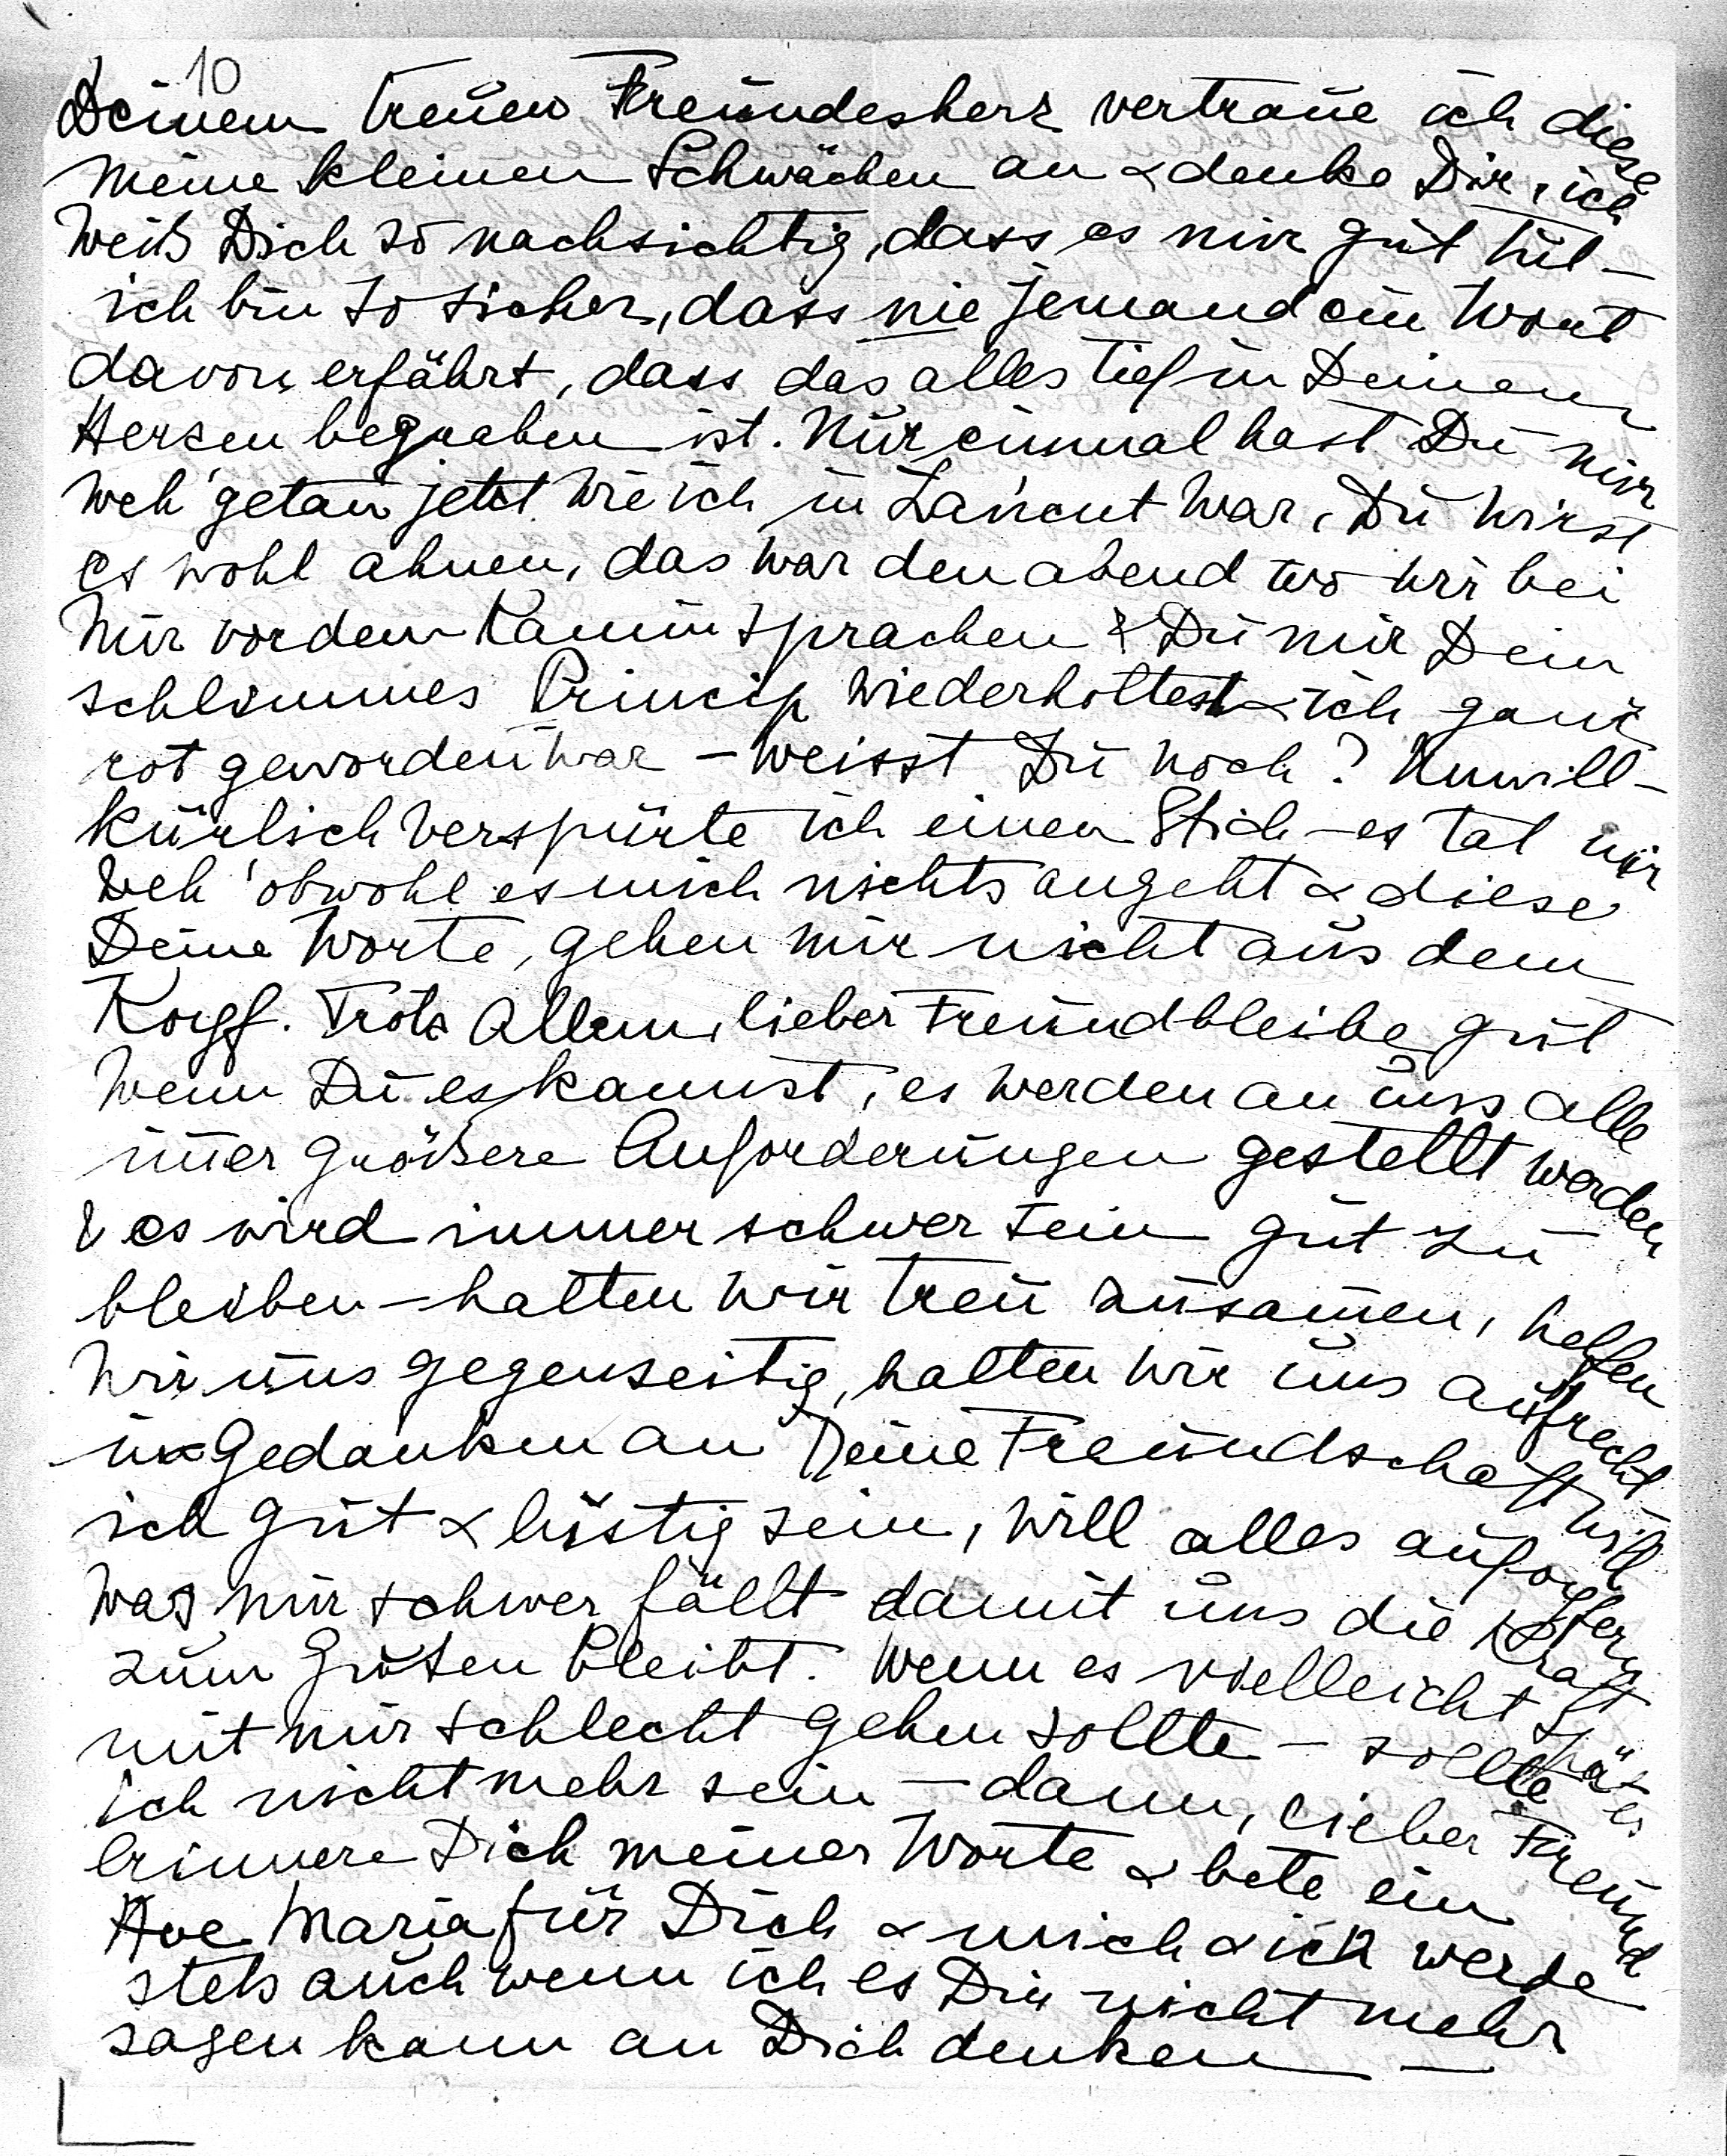 10
Deinem treuen Freundesherz vertraue ich diese
meine kleinen Schwächen an & denke Dir, ich
weiß Dich so nachsichtig, dass es mir gut tut –
ich bin so sicher, dass nie jemand ein Wort
davon erfährt, dass das alles tief in Deinem
Herzen begraben ist. Nur einmal hast Du mir
weh' getan jetzt wie ich in Łańcut war, Du wirst
es wohl ahnen, das war den abend wo wir bei
mir vor dem Kamin sprachen & Du mir Dein
schlimmes Princip wiederholtest & ich ganz
rot geworden war – weisst Du noch? Unwill-
kürlich verspürte ich einen Stich – es tat mir
weh' obwohl es mich nichts angeht & diese
Deine Worte, gehen mir nicht aus dem
Kopf. Trotz Allem, lieber Freund bleibe gut
wenn Du es kannst, es werden an uns alle
imer größere Anforderungen gestellt werden
& es wird immer schwer sein gut zu
bleiben – halten wir treu zusamen, helfen
wir uns gegenseitig, halten wir uns aufrecht –
in Gedanken an Deine Freundschaft will
ich gut & lustig sein, will alles aufopfern
was mir schwer fällt damit uns die Kraft
zum Guten bleibt. Wenn es vielleicht später
mit mir schlecht gehen sollte – sollte
ich nicht mehr sein – dann, lieber Freund
erinnere Dich meiner Worte & bete ein
Ave Maria für Dich & mich & ich werde
stets auch wenn ich es Dir nicht mehr
sagen kann an Dich denken –